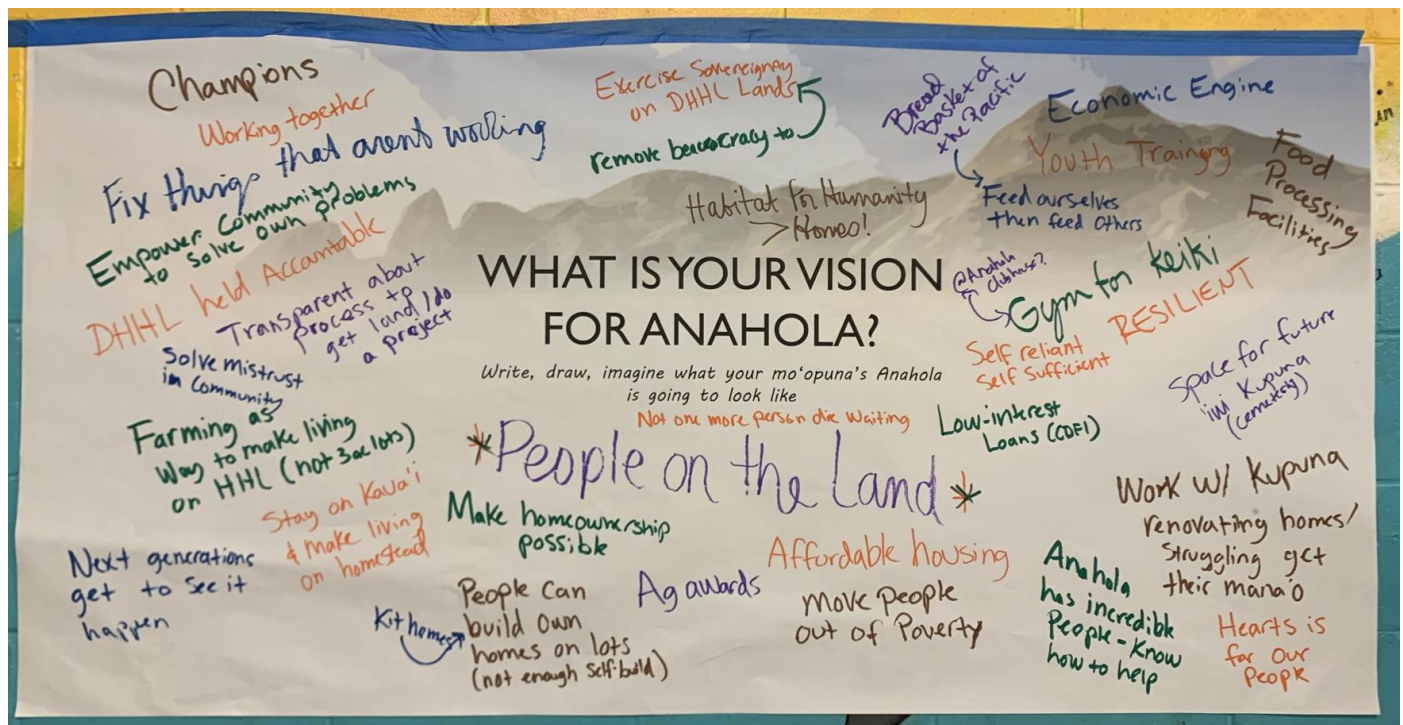 Champions
Working together
Fix things that arent working
Empower Community
to solve own problems
DHHL held Accountable
Transparent about
process to
get land/do
a project
Solve mistrust
in Community
Farming as
way to make living
on HHL (not 3ac lots)
Stay on Kaua'i
& make living
on homestead
Next generations
get to see it
happen
Exercise Sovereignty
on DHHL Lands
remove beaurocracy to
Habitat for Humanity
> Homes!
WHAT IS YOUR VISION
FOR ANAHOLA?
Write, draw, imagine what your mo‘opuna’s Anahola
is going to look like
Not one more person die waiting
*People on the Land*
Make homeownership
possible
Kit homes
People Can
build own
homes on lots
(not enough Self-build)
Ag awards
Affordable housing
move people
out of Poverty
Bread
Basket of
the Pacific
Feed ourselves
then feed others
Economic Engine
Youth Training
Food
Processing
Facilities
@Anahola
clubhouse?
Gym for Keiki
RESILIENT
Self reliant
Self Sufficient
Space for future
'iwi Kupuna
(cemetery)
Low-interest
Loans (CDFI)
Work w/ Kupuna
renovating homes/
struggling get
their mana'o
Anahola
has incredible
People - Know
how to help
Hearts is
for Our
People